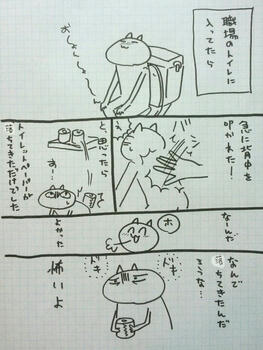 職場のトイレに
入ってたら
おしょんしょん
急に背中を
叩かれた!
と、思ったら
す…
トイレットペーパーが
落ちてきただけでした
なーんだ
ホ
よかった
なんで
落ちてきたんだ
ろうな…
ドキ
ドキ
怖いよ